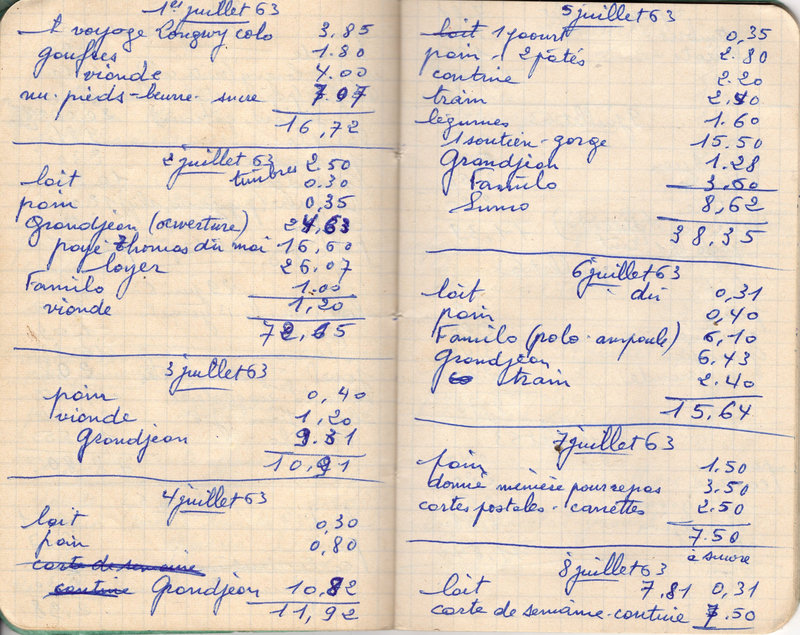 1er juillet 63
1 voyage Longwy colo 3,85
gaufres 1.80
viande 4.00
nu-pieds-beurre-sucre 7.07
16,72
2 juillet 63
timbres 2.50
lait 0.30
pain 0,35
Grandjean (ouverture) 24,63
payé Thomas du mai 16,60
loyer 26.07
Familo 1.00
viande 1,20
72,65
3 juillet 63
pain 0,40
viande 1,20
Grandjean 9.31
10,91
4 juillet 63
lait 0,30
pain 0,80
carte de semaine
cantine Grandjean 10,82
11,92
5 juillet 63
lait 1 yaourt 0,35
pain - 2 pâtés 2.80
cantine 2.20
train 2,40
légumes 1.60
1 soutien-gorge 15.50
Grandjean 1.28
Familo 3,60
Sumo 8,62
38.35
6 juillet 63
lait dû 0,31
pain 0,40
Familo (polo-ampoule) 6,10
Grandjean 6.43
train 2.40
15,64
7 juillet 63
pain 1.50
donné mémère pour repas 3.50
cartes postales - carrettes 2.50
7.50
8 juillet 63 à sucre
lait 7,81 0,31
carte de semaine-cantine 7.50